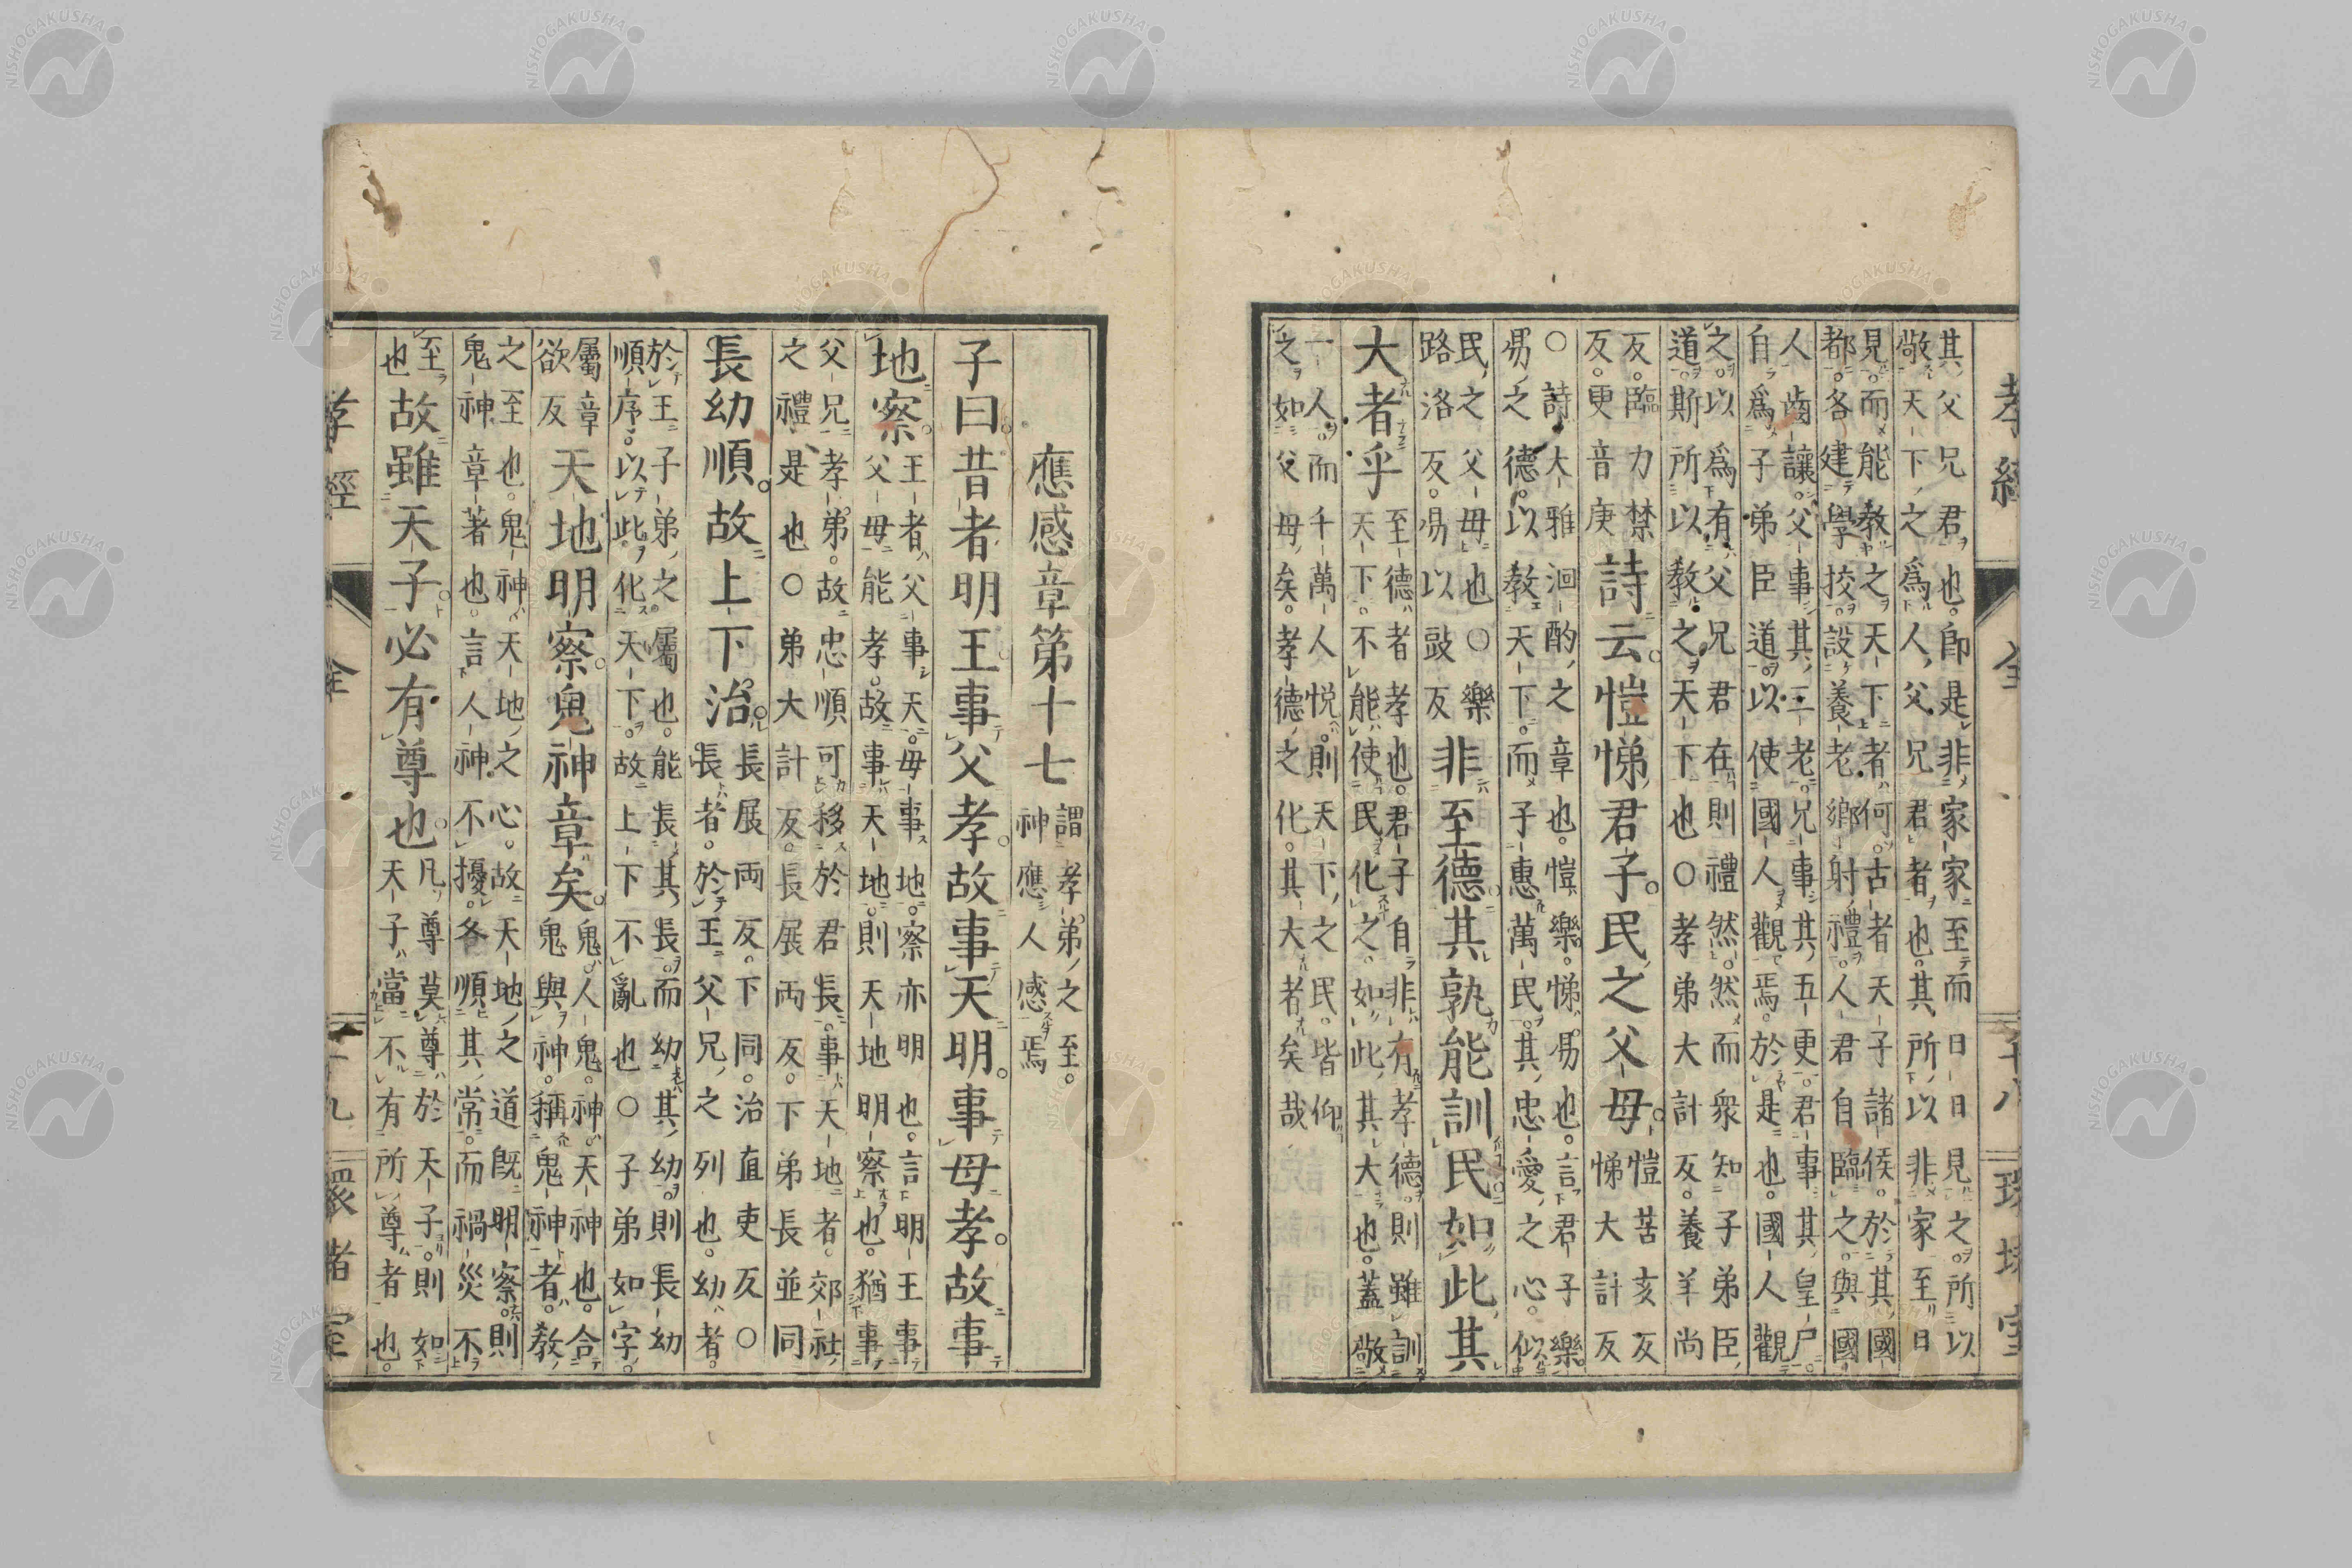 孝經 全 十八 環堵室
其父兄君也。卽是非家家至而日日見之。所以
敬天下之爲人父兄君者也。其所以非家至日
見而能教之天下者何。古者天子諸侯。於其國
都。各建學挍設養老鄉射禮。人君自臨之與國
人齒讓。父事其三老兄事其五更。君事其皇尸
自爲子弟臣道。以使國人觀焉。於是也。國人觀
之以爲有父兄君在則禮然。然而衆知子弟臣
道。斯所以教之天下也○孝弟大計反養羊尚
反。臨力禁
反。更音庚
詩云。愷悌君子。民之父母。
愷苦亥反
悌大計反
○詩大雅泂酌之章也。愷樂。悌易也。言君子樂
易之德。以教天下。而子惠萬民。其忠愛之心。似
民之父母也○樂
路洛反。易以豉反
非至德。其孰能訓民。如此其
大者乎
至德者孝也。君子自非有孝德。則雖訓
天下。不能使民化之。如此其大也。蓋敬
一人。而千萬人悦。則天下之民。皆仰
之如父母矣。孝德之化。其大者矣哉
應感章第十七
謂孝弟之至。
神應人感焉
子曰昔者明王事父孝。故事天明。事母孝。故事
地察。
王者父事天。母事地。察亦明也。言明王事
父母能孝。故事天地。則天地明察也。猶事
父兄孝弟。故忠順可移於君長。事天地者。郊社
之禮是也○弟大計反。長展両反。下弟長並同
長幼順。故上下治。
長展両反。下同。治直吏反○
長者。於王父兄之列也。幼者。
於王子弟之屬也。能長其長。而幼其幼。則長幼
順序。以此化天下。故上下不亂也○子弟如字。
屬章
欲反
天地明察。鬼神章矣。
鬼人鬼。神天神也。合
鬼與神。稱鬼神者。教
之至也。鬼神天地之心。故天地之道旣明察。則
鬼神章著也。言人神不擾。各順其常。而禍災不
至
也
故雖天子。必有尊也。
凡尊莫尊於天子。則如
天子當不有所尊者也。
孝經 全 十九 環堵室